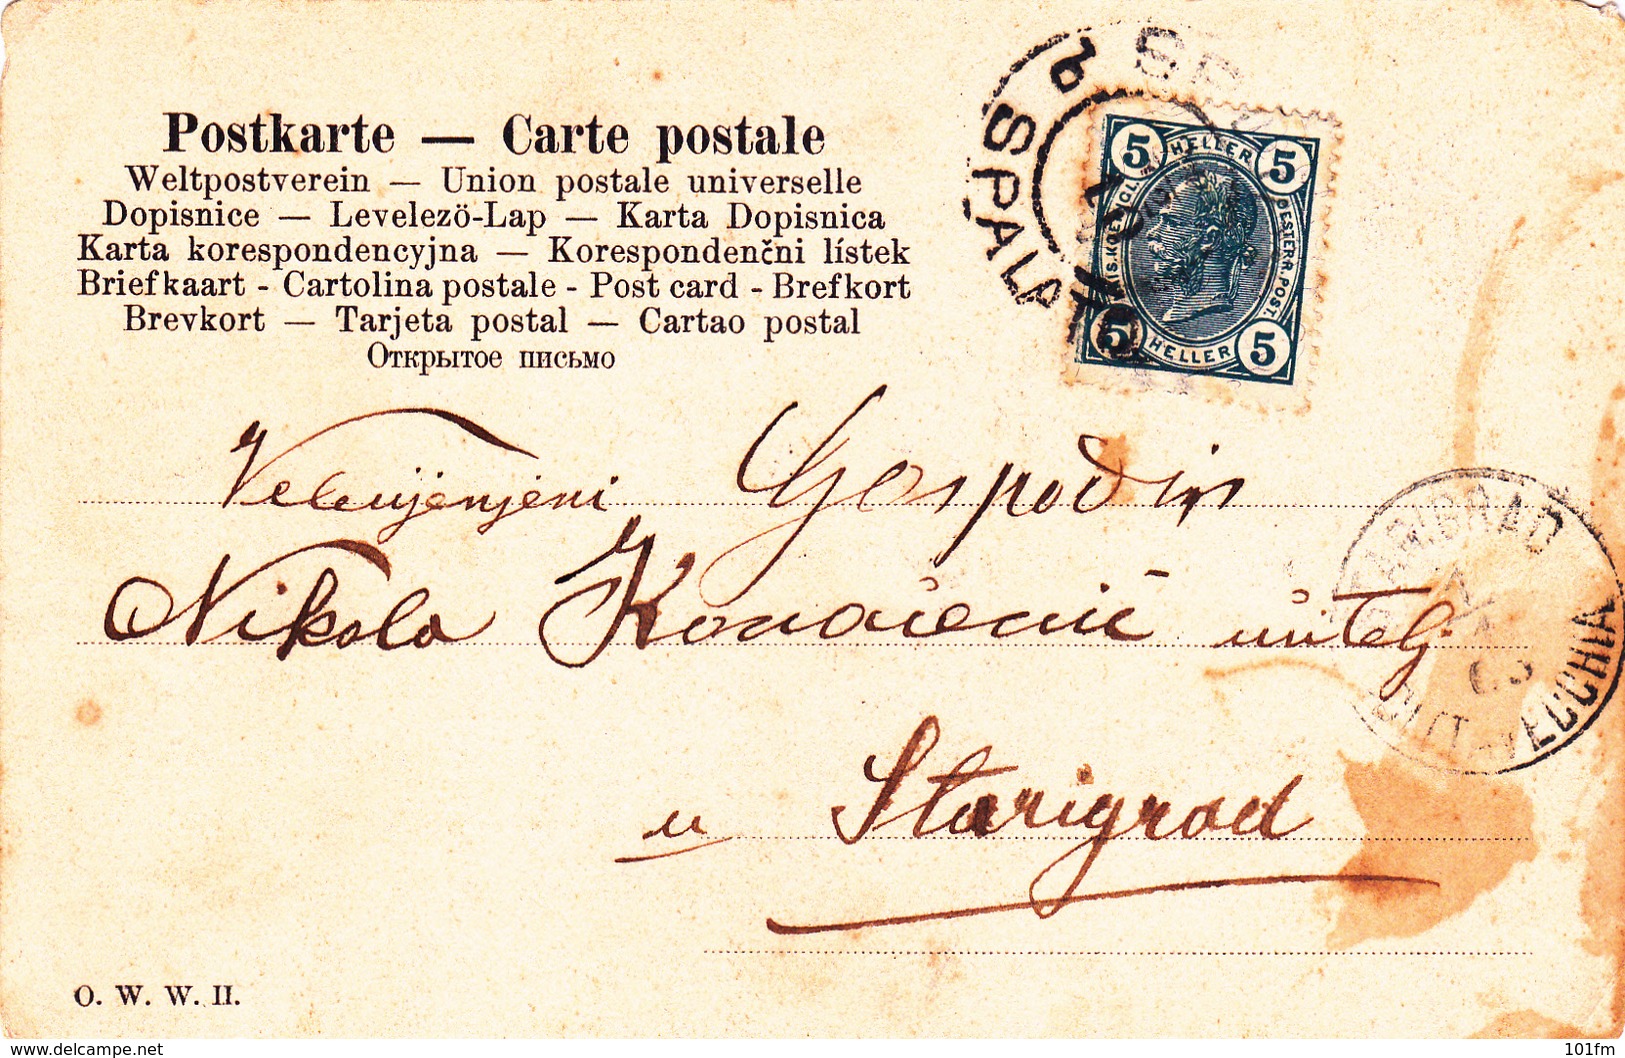 Postkarte — Carte postale
Weltpostverein — Union postale universelle
Dopisnice — Levelezö-Lap — Karta Dopisnica
Karta korespondencyjna — Korespondenčni lístek
Briefkaart - Cartolina postale - Post card - Brefkort
Brevkort — Tarjeta postal — Cartao postal
Открытое письмо
b SPALATO
5 HELLER 5
5 HELLER 5
Gospodin
Nikola
učitelj
u Starigrad
STARIGRAD
CITTAVECCHIA
O. W. W. II.
delcampe.net
101fm